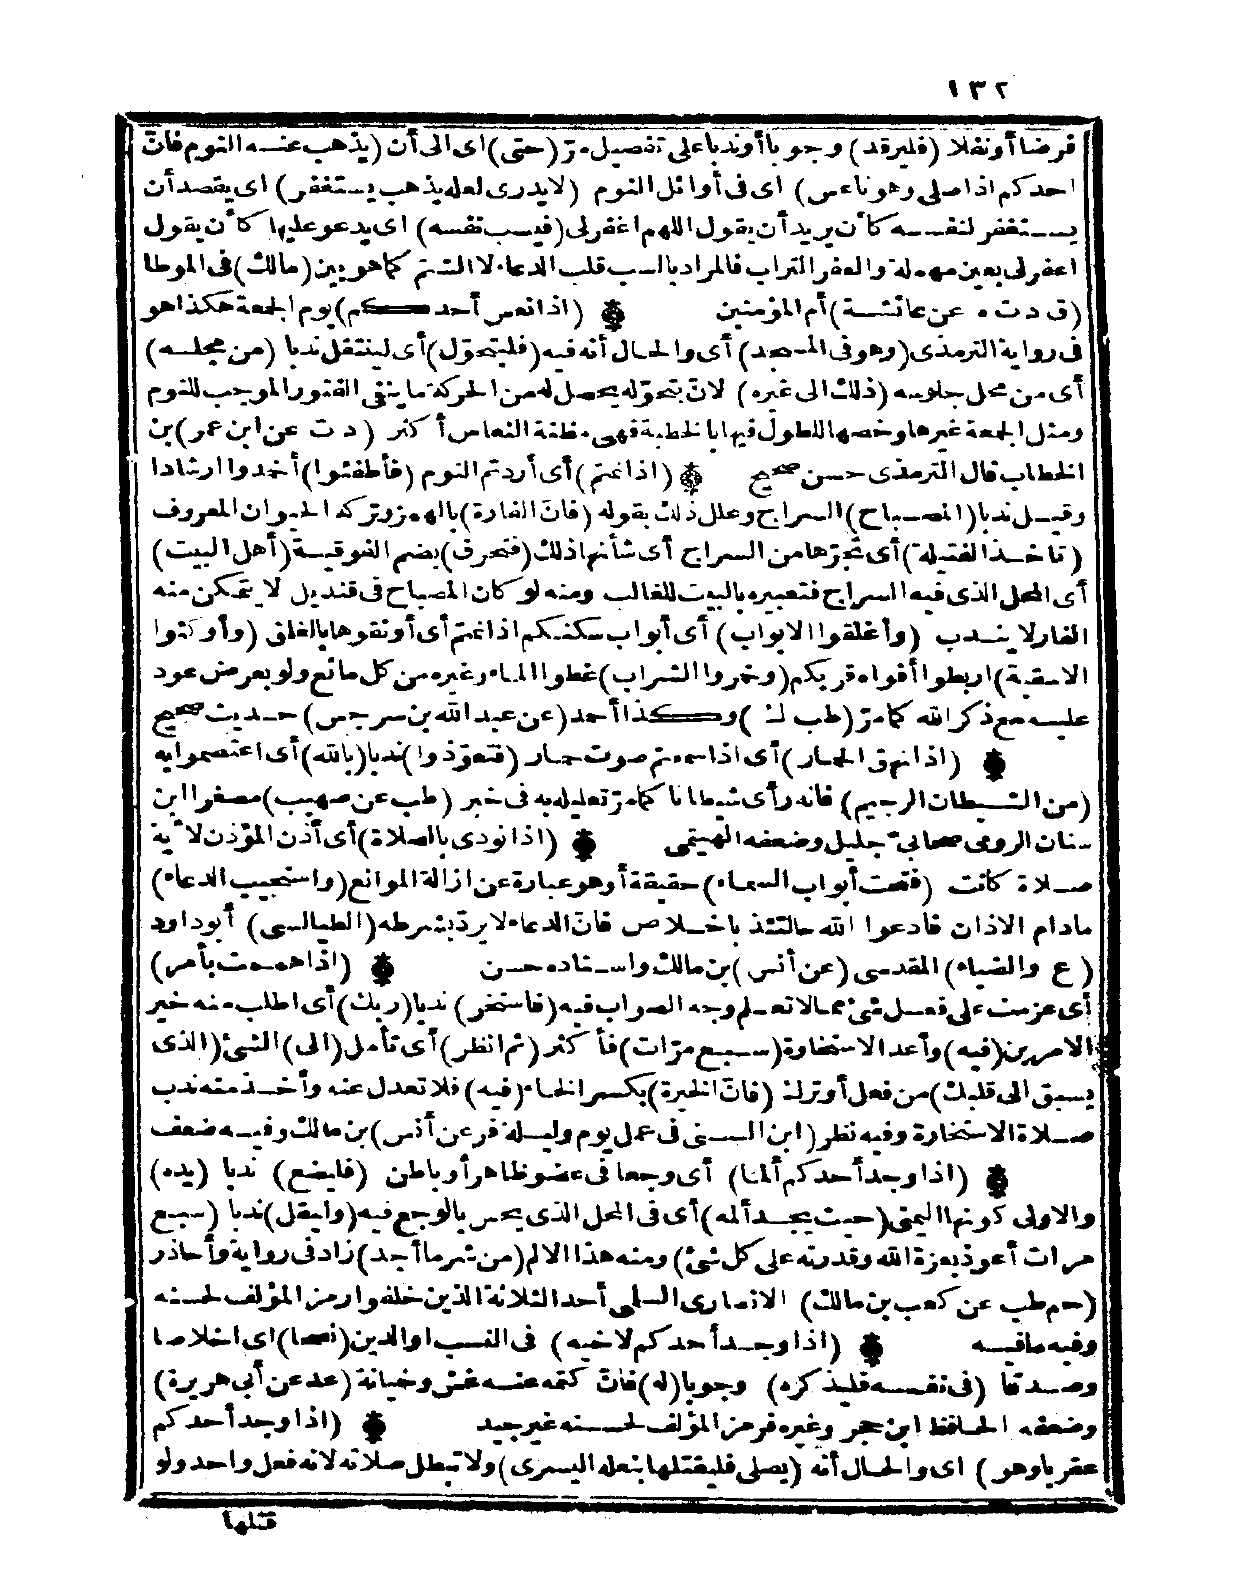 ١٣٢
فرضا أو نفلا (فليرقد) وجوبا أو ندبا على تفصيل مرّ (حتى) اى الى أن (يذهب عنه النوم فانّ
احدكم اذا صلى وهو ناعس) اى فى أوائل النوم (لا يدرى لعله يذهب يستغفر) اى يقصد أن
يستغفر لنفسه كأن يريد أن يقول اللهم اغفر لى (فيسب نفسه) اى يدعو عليها كأن يقول
اعفر لى بعين مهملة والعفر التراب فالمراد بالسب قلب الدعاء لا الشتم كما هو بين (مالك) فى الموطا
(ق د ت ه عن عائشة) أم المؤمنين (اذا نعس أحدكم) يوم الجمعة هكذا هو
فى رواية الترمذى (وهو فى المسجد) أى والحال أنه فيه (فليتحوّل) أى لينتقل ندبا (من مجلسه)
أى من محل جلوسه (ذلك الى غيره) لانّ بتحوّله يحصل له من الحركة ما ينفى الفتور الموجب للنوم
ومثل الجمعة غيرها وخصها للطول فيها بالخطبة فهى مظنة النعاس أكثر (د ت عن ابن عمر) بن
الخطاب قال الترمذى حسن صحيح (اذا نمتم) أى أردتم النوم (فأطفئوا) أخمدوا ارشادا
وقيل ندبا (المصباح) السراج وعلل ذلك بقوله (فانّ الفارة) بالهمز وتركه الحيوان المعروف
(تاخذ الفتيلة) أى تجرّها من السراج أى شأنها ذلك (فتحرق) بضم الفوقية (أهل البيت)
أى المحل الذى فيه السراج فتعبيره بالبيت للغالب ومنه لو كان المصباح فى قنديل لا يتمكن منه
الفار لا يندب (وأغلقوا الابواب) أى أبواب سكنكم اذا نمتم أى أوثقوها بالغلق (وأوكئوا
الاسقية) اربطوا أفواه قربكم (وخمروا الشراب) غطوا الماء وغيره من كل مائع ولو بعرض عود
عليه مع ذكر الله كما مرّ (طب ك) وكذا أحمد (عن عبد الله بن سرجس) حديث صحيح
(اذا نهق الحمار) أى اذا سمعتم صوت حمار (فتعوّذوا) ندبا (بالله) أى اعتصموا به
(من الشيطان الرجيم) فانه رأى شيطانا كما مرّ تعليله به فى خبر (طب عن صهيب) مصغرا ابن
سنان الرومى صحابىّ جليل وضعفه الهيتمى (اذا نودى بالصلاة) أى أذن المؤذن لأية
صلاة كانت (فتحت أبواب السماء) حقيقة أو هو عبارة عن ازالة الموانع (واستجيب الدعاء)
مادام الاذان فادعوا الله حالتئذ باخلاص فانّ الدعاء لا يردّ بشرطه (الطيالسى) أبو داود
(ع والضياء) المقدسى (عن أنس) بن مالك واسناده حسن (اذا هممت بأمر)
أى عزمت على فعل شئ مما لا تعلم وجه الصواب فيه (فاستخر) ندبا (ربك) أى اطلب منه خير
الامرين (فيه) وأعد الاستخارة (سبع مرّات) فأكثر (ثم انظر) أى تأمل (الى) الشئ (الذى
يسبق الى قلبك) من فعل أو ترك (فانّ الخيرة) بكسر الخاء (فيه) فلا تعدل عنه وأخذ منه ندب
صلاة الاستخارة وفيه نظر (ابن السنى فى عمل يوم وليلة فر عن أنس) بن مالك وفيه ضعف
(اذا وجد أحدكم ألما) أى وجعا فى عضو ظاهر أو باطن (فليضع) ندبا (يده)
والاولى كونها اليمنى (حيث يجد ألمه) أى فى المحل الذى يحس بالوجع فيه (وليقل) ندبا (سبع
مرات أعوذ بعزة الله وقدرته على كل شئ) ومنه هذا الالم (من شر ما أجد) زاد فى رواية وأحاذر
(حم طب عن كعب بن مالك) الانصارى السلمى أحد الثلاثة الذين خلفوا رمز المؤلف لحسنه
وفيه ما فيه (اذا وجد أحدكم لاخيه) فى النسب او الدين (نصحا) اى اخلاصا
وصدقا (فى نفسه فليذكره) وجوبا (له) فانّ كتمه عنه غش وخيانة (عد عن أبى هريرة)
وضعفه الحافظ ابن حجر وغيره فرمز المؤلف لحسنه غير جيد (اذا وجد أحدكم
عقربا وهو) اى والحال أنه (يصلى فليقتلها بنعله اليسرى) ولا تبطل صلاته لانه فعل واحد ولو
قتلها